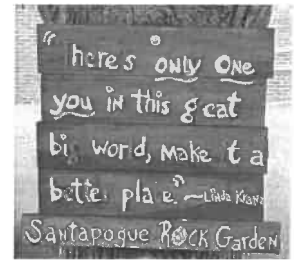 "here's only one
you in this great
big world, make it a
better place."~Linda Kranz
Santapogue Rock Garden